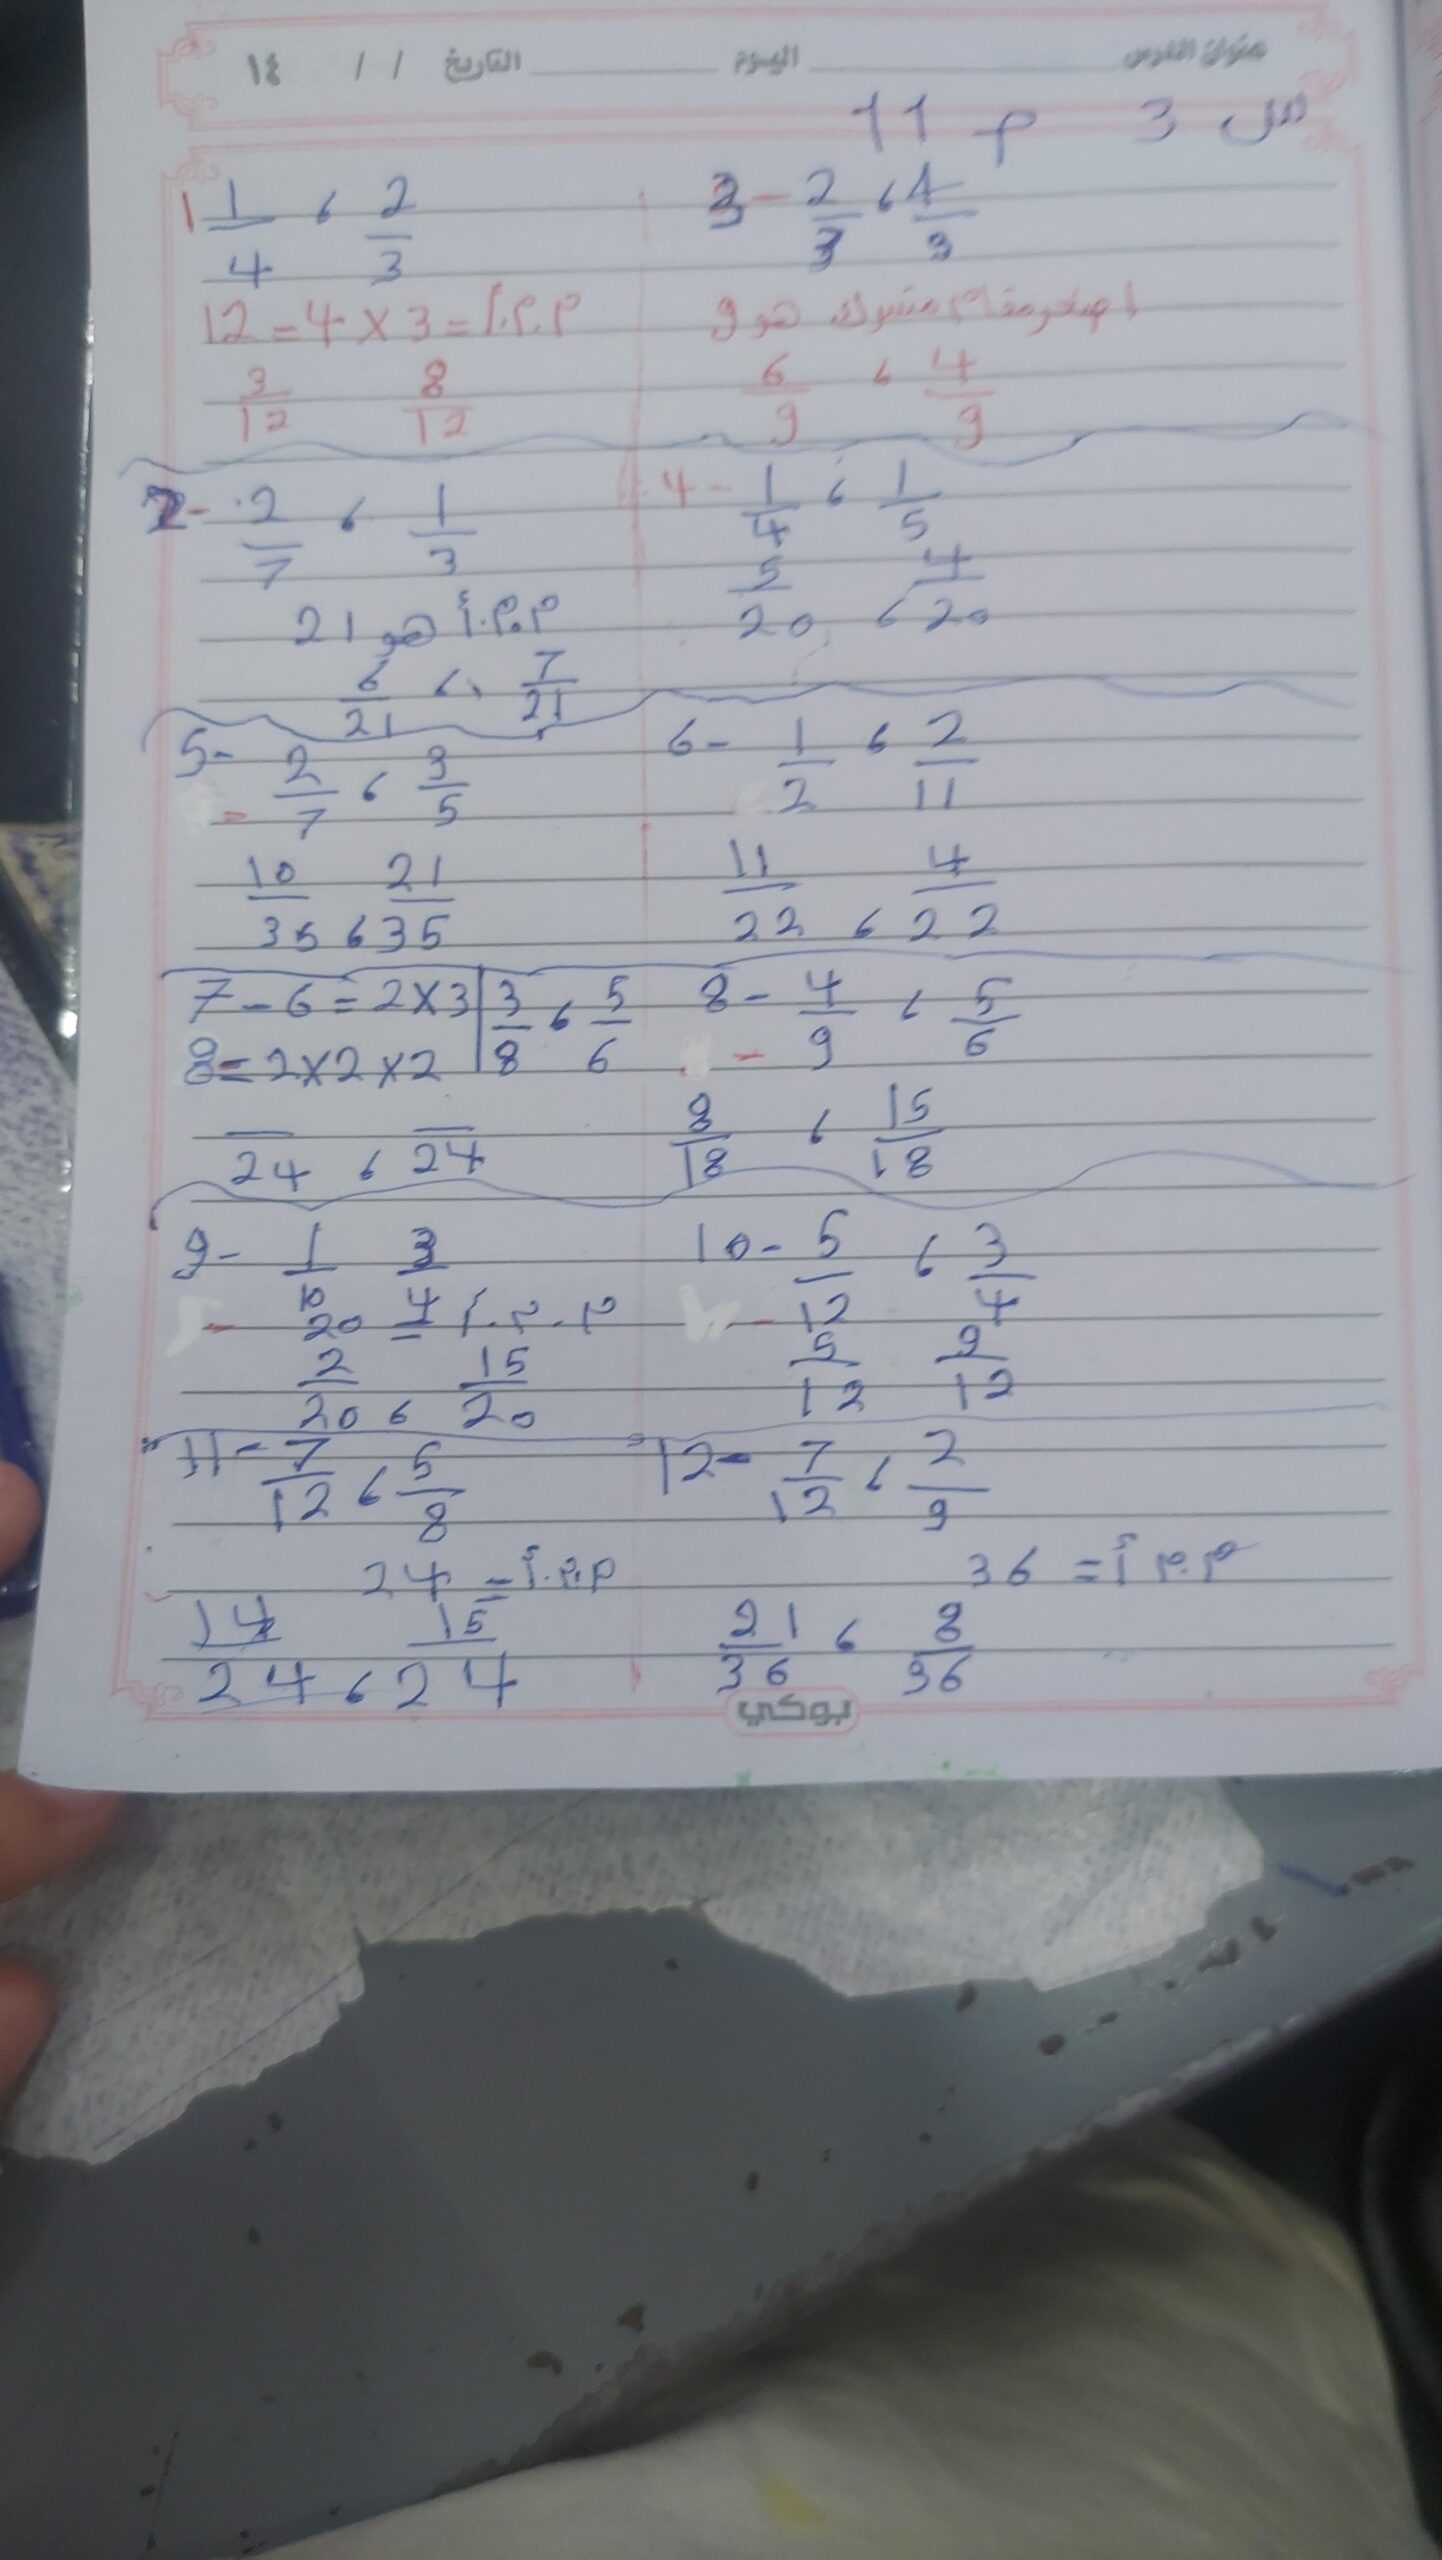 عنوان الدرس اليوم التاريخ / / ١٤
س 3 م 11
1 1/4 ، 2/3
12 = 4 × 3 = م.م.أ
3/12 8/12
3 - 2/3 ، 4/9
اصغر مقام مشترك هو 9
6/9 ، 4/9
2- 2/7 ، 1/3
م.م.أ هو 21
6/21 ، 7/21
4 - 1/4 ، 1/5
5/20 ، 4/20
5- 2/7 ، 3/5
10/35 ، 21/35
6 - 1/2 ، 2/11
11/22 ، 4/22
7 - 6 = 2×3 | 3/8 ، 5/6
8 = 2×2×2
/24 ، /24
8 - 4/9 ، 5/6
8/18 ، 15/18
9 - 1/10 3/4
20 = م.م.أ
2/20 ، 15/20
10 - 5/12 ، 3/4
5/12 9/12
11 - 7/12 ، 5/8
24 = م.م.أ
14/24 ، 15/24
12 - 7/12 ، 2/9
36 = م.م.أ
21/36 ، 8/36
يوكي